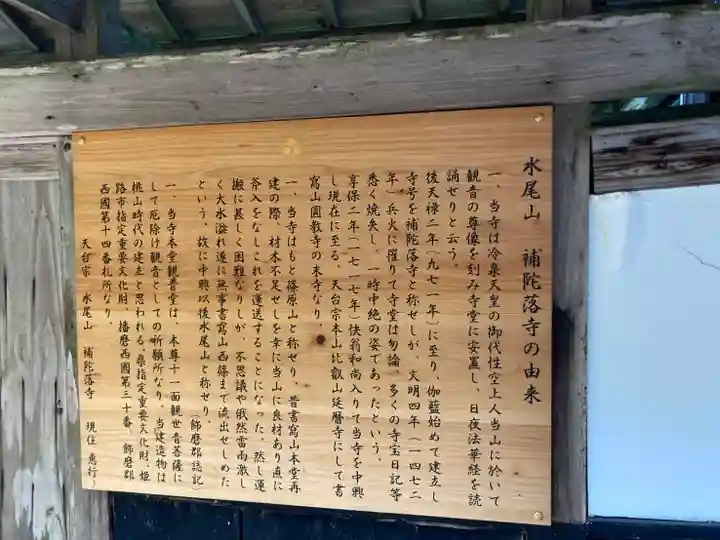 水尾山　補陀落寺の由来
一、当寺は冷泉天皇の御代性空上人当山に於いて
観音の尊像を刻み寺堂に安置し、日夜法華経を読
誦せりと云う。
後天禄二年（九七一年）に至り、伽藍始めて建立し
寺号を補陀落寺と称せしが、文明四年（一四七二
年）兵火に罹りて寺堂は勿論、多くの寺宝日記等
悉く焼失し、一時中絶の姿であったという。
享保二年（一七一七年）快翁和尚入りて当寺を中興
し現在に至る。天台宗本山比叡山延暦寺にして書
寫山圓教寺の末寺なり。
一、当寺はもと篠原山と称せり。昔書寫山本堂再
建の際、材木不足せしを幸に当山に良材あり直に
斧入をなしこれを運送することになった。然し運
搬に甚しく困難なりしが、不思議や俄然雷雨激し
く大水溢れ遂に無事書寫山西篠まで流出せしめた
という。故に中興以後水尾山と称せり
（飾磨郡誌記）
一、当寺本堂観音堂は、本尊十一面観世音菩薩に
して厄除け観音としての祈願所なり。当建造物は
桃山時代の建立と思われる。県指定重要文化財、姫
路市指定重要文化財、播磨西國第三十番、飾磨郡
西國第十四番札所なり。
天台宗　水尾山　補陀落寺　現住　惠行